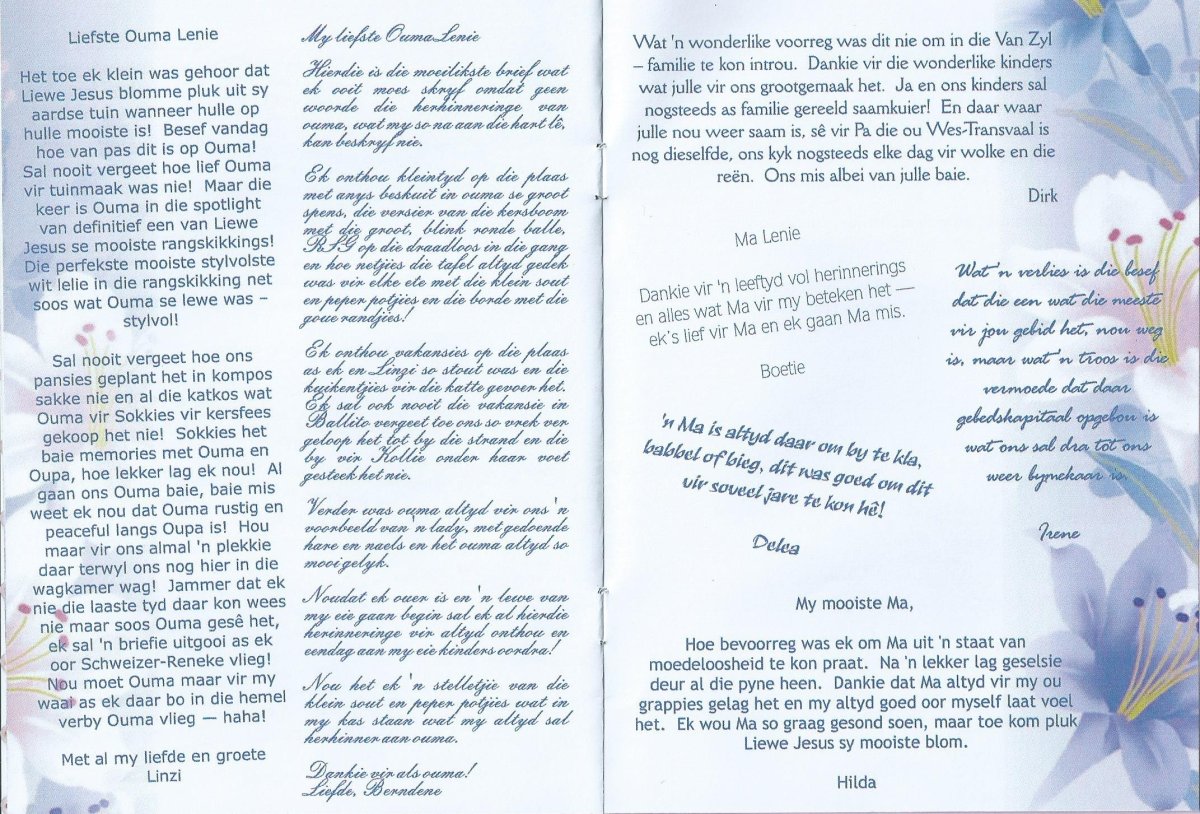 Liefste Ouma Lenie
Het toe ek klein was gehoor dat
Liewe Jesus blomme pluk uit sy
aardse tuin wanneer hulle op
hulle mooiste is! Besef vandag
hoe van pas dit is op Ouma!
Sal nooit vergeet hoe lief Ouma
vir tuinmaak was nie! Maar die
keer is Ouma in die spotlight
van definitief een van Liewe
Jesus se mooiste rangskikkings!
Die perfekste mooiste stylvolste
wit lelie in die rangskikking net
soos wat Ouma se lewe was –
stylvol!
Sal nooit vergeet hoe ons
pansies geplant het in kompos
sakke nie en al die katkos wat
Ouma vir Sokkies vir kersfees
gekoop het nie! Sokkies het
baie memories met Ouma en
Oupa, hoe lekker lag ek nou! Al
gaan ons Ouma baie, baie mis
weet ek nou dat Ouma rustig en
peaceful langs Oupa is! Hou
maar vir ons almal 'n plekkie
daar terwyl ons nog hier in die
wagkamer wag! Jammer dat ek
nie die laaste tyd daar kon wees
nie maar soos Ouma gesê het,
ek sal 'n briefie uitgooi as ek
oor Schweizer-Reneke vlieg!
Nou moet Ouma maar vir my
waai as ek daar bo in die hemel
verby Ouma vlieg — haha!
Met al my liefde en groete
Linzi
My liefste Ouma Lenie
Hierdie is die moeilikste brief wat
ek ooit moes skryf omdat geen
woorde die herhinneringe van
ouma, wat my so na aan die hart lê,
kan beskryf nie.
Ek onthou kleintyd op die plaas
met anys beskuit in ouma se groot
spens, die versier van die kersboom
met die groot, blink ronde balle,
RSG op die draadloos in die gang
en hoe netjies die tafel altyd gedek
was vir elke ete met die klein sout
en peper potjies en die borde met die
goue randjies!
Ek onthou vakansies op die plaas
as ek en Linzi so stout was en die
kuikentjies vir die katte gevoer het.
Ek sal ook nooit die vakansie in
Ballito vergeet toe ons so vrek ver
geloop het tot by die strand en die
by vir Kollie onder haar voet
gesteek het nie.
Verder was ouma altyd vir ons 'n
voorbeeld van 'n lady, met gedoende
hare en naels en het ouma altyd so
mooi gelyk.
Noudat ek ouer is en 'n lewe van
my eie gaan begin sal ek al hierdie
herinneringe vir altyd onthou en
eendag aan my eie kinders oordra!
Nou het ek 'n stelletjie van die
klein sout en peper potjies wat in
my kas staan wat my altyd sal
herhinner aan ouma.
Dankie vir als ouma!
Liefde, Berndene
Wat 'n wonderlike voorreg was dit nie om in die Van Zyl
– familie te kon introu. Dankie vir die wonderlike kinders
wat julle vir ons grootgemaak het. Ja en ons kinders sal
nogsteeds as familie gereeld saamkuier! En daar waar
julle nou weer saam is, sê vir Pa die ou Wes-Transvaal is
nog dieselfde, ons kyk nogsteeds elke dag vir wolke en die
reën. Ons mis albei van julle baie.
Dirk
Ma Lenie
Dankie vir 'n leeftyd vol herinnerings
en alles wat Ma vir my beteken het —
ek's lief vir Ma en ek gaan Ma mis.
Boetie
Wat 'n verlies is die besef
dat die een wat die meeste
vir jou gebid het, nou weg
is, maar wat 'n troos is die
vermoede dat daar
gebedskapitaal opgebou is
wat ons sal dra tot ons
weer bymekaar is.
Irene
'n Ma is altyd daar om by te kla,
babbel of bieg, dit was goed om dit
vir soveel jare te kon hê!
Delea
My mooiste Ma,
Hoe bevoorreg was ek om Ma uit 'n staat van
moedeloosheid te kon praat. Na 'n lekker lag geselsie
deur al die pyne heen. Dankie dat Ma altyd vir my ou
grappies gelag het en my altyd goed oor myself laat voel
het. Ek wou Ma so graag gesond soen, maar toe kom pluk
Liewe Jesus sy mooiste blom.
Hilda